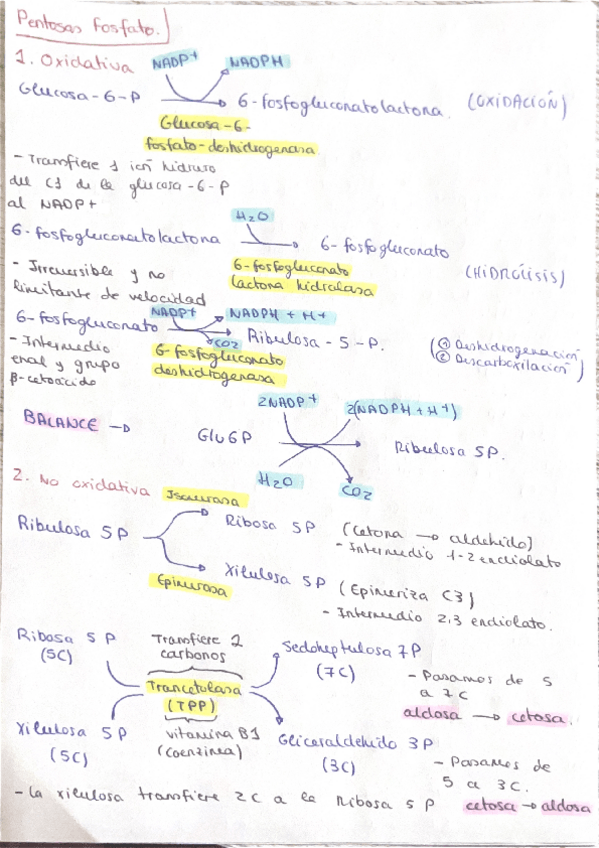 Pentosas fosfato.
1. Oxidativa NADP+ NADPH
Glucosa-6-P 6-fosfogluconatolactona. (OXIDACIÓN)
Glucosa-6-
fosfato-deshidrogenasa.
- Transfiere 1 ión hidruro
del C1 de la glucosa-6-P
al NADP+
H2O
6-fosfogluconatolactona 6-fosfogluconato
- Irreversible y no
limitante de velocidad
6-fosfogluconato
lactona hidrolasa
(HIDRÓLISIS)
NADP+ NADPH + H+
6-fosfogluconato Ribulosa-5-P.
CO2
- Intermedio
enol y grupo
β-cetoácido
6-fosfogluconato
deshidrogenasa
(① Deshidrogenación
② Descarboxilación)
2NADP+ 2(NADPH+H+)
BALANCE → Glu6P Ribulosa 5P.
H2O CO2
2. No oxidativa Isomerasa
Ribulosa 5P Ribosa 5P (Cetona → aldehido)
- Intermedio 1-2 endiolato
Xilulosa 5P (Epimeriza C3)
Epimerasa
- Intermedio 2,3 endiolato.
Ribosa 5P Transfiere 2 Sedoheptulosa 7P
(5C) carbonos (7C)
Trancetolasa
(TPP)
- Pasamos de 5
a 7C
aldosa → cetosa.
Xilulosa 5P vitamina B1 Gliceraldehido 3P
(5C) (coenzima) (3C)
- Pasamos de
5 a 3C.
- La xilulosa transfiere 2C a la Ribosa 5P cetosa → aldosa